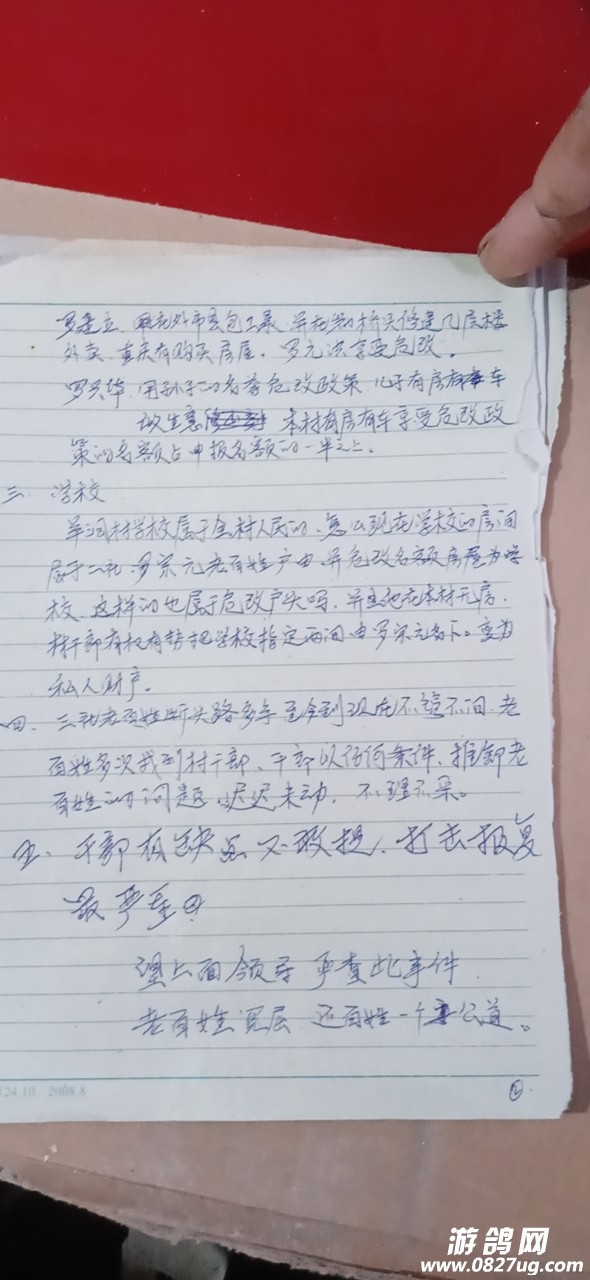 罗建立、在外市承包工程、并在桥头修建几层楼
外卖、重庆有购买房屋。罗元洪享受危改。
罗兴华、用孙子的名字危改政策、儿子有房有车
做生意 本村有房有车享受危改政
策的名额占申报名额的一半之上。
三、学校
单洞村学校属于全村人民的、怎么现在学校的房间
属于二社、罗宗元老百姓户由、并危改名额房屋为学
校、这样的也属于危改户头吗、并且他在本村无房、
村干部有权有势把学校指定两间由罗宗元名下。变为
私人财产。
四、三社老百姓断头路多年至今到现在不管不问、老
百姓多次找到村干部、干部以任何条件、推卸老
百姓的问题、迟迟未动、不理不采。
五、干部有缺点不敢提、打击报复
最严重
望上面领导严查此事件
老百姓 还百姓一个公道。
124.10 2008.8
②
游鸽网
www.0827ug.com